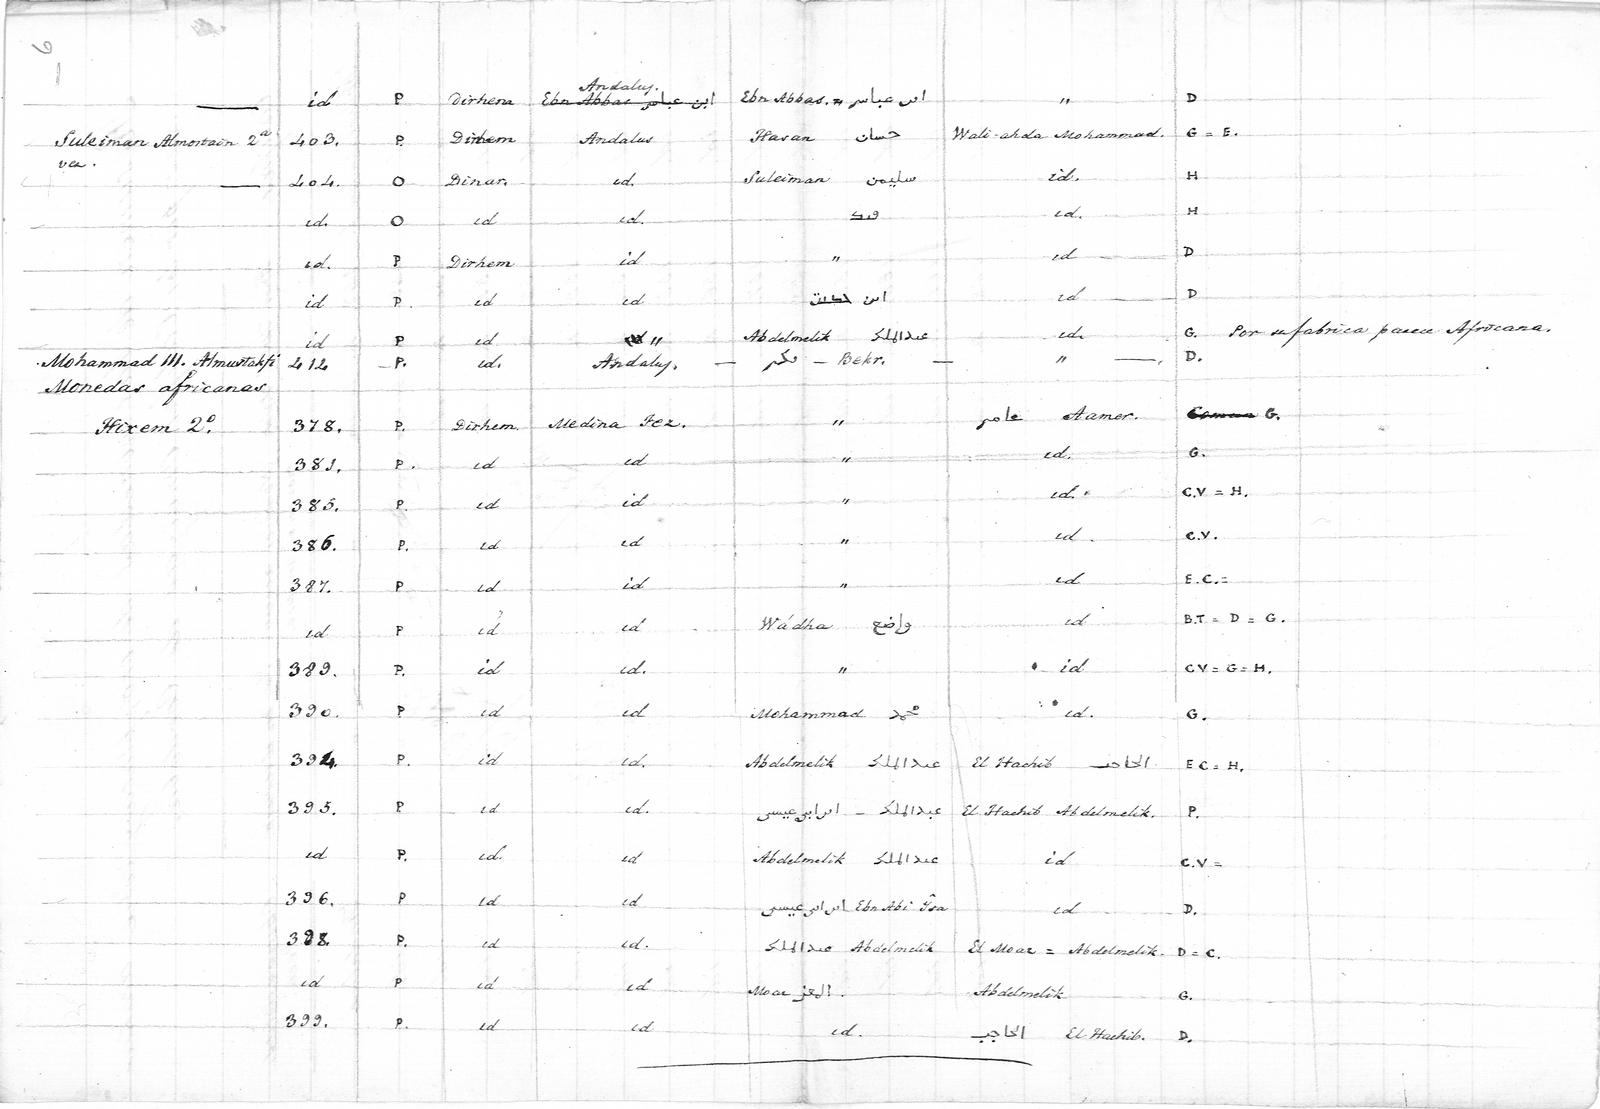 6
id P Dirhem Andalus. Ebn Abbas ابن عباس Ebn Abbas. = ابن عباس " D
Suleiman Almostain 2ª 403. P. Dirhem Andalus Hasan حسان Wali-ahda Mohammad. G = E.
vez.
404. O Dinar. id. Suleiman سليمن id. H
id. O id id. id. H
id. P. Dirhem id " id D
id P. id id ابن id D
id P id " Abdelmelik عبدالملك id. G. Por su fabrica parece Africana.
Mohammad III. Almustakfi 412 P. id. Andalus. بكر Bekr. " D.
Monedas africanas
Hixem 2º. 378. P. Dirhem. Medina Fez. " عامر Aamer. G.
381. P. id id " id. G.
385. P. id id " id. C.V = H.
386. P. id id " id. C.V.
387. P id id " id E.C.=
id P id id Wádha واضح id B.T = D = G.
389. P. id id. " id C.V = G = H.
390. P id id Mohammad محمد id. G.
394. P. id id. Abdelmelik عبدالملك El Hachib الحاجب E C = H.
395. P id id. عبدالملك - ابن ابي عيسى El Hachib Abdelmelik. P.
id P. id. id Abdelmelik عبدالملك id C.V =
396. P id id ابن ابي عيسى Ebn Abi Ysa id D.
398. P. id id. عبدالملك Abdelmelik El Moaz = Abdelmelik. D = C.
id P id id Moaz المعز. Abdelmelik G.
399. P. id id id. الحاجب El Hachib. D.